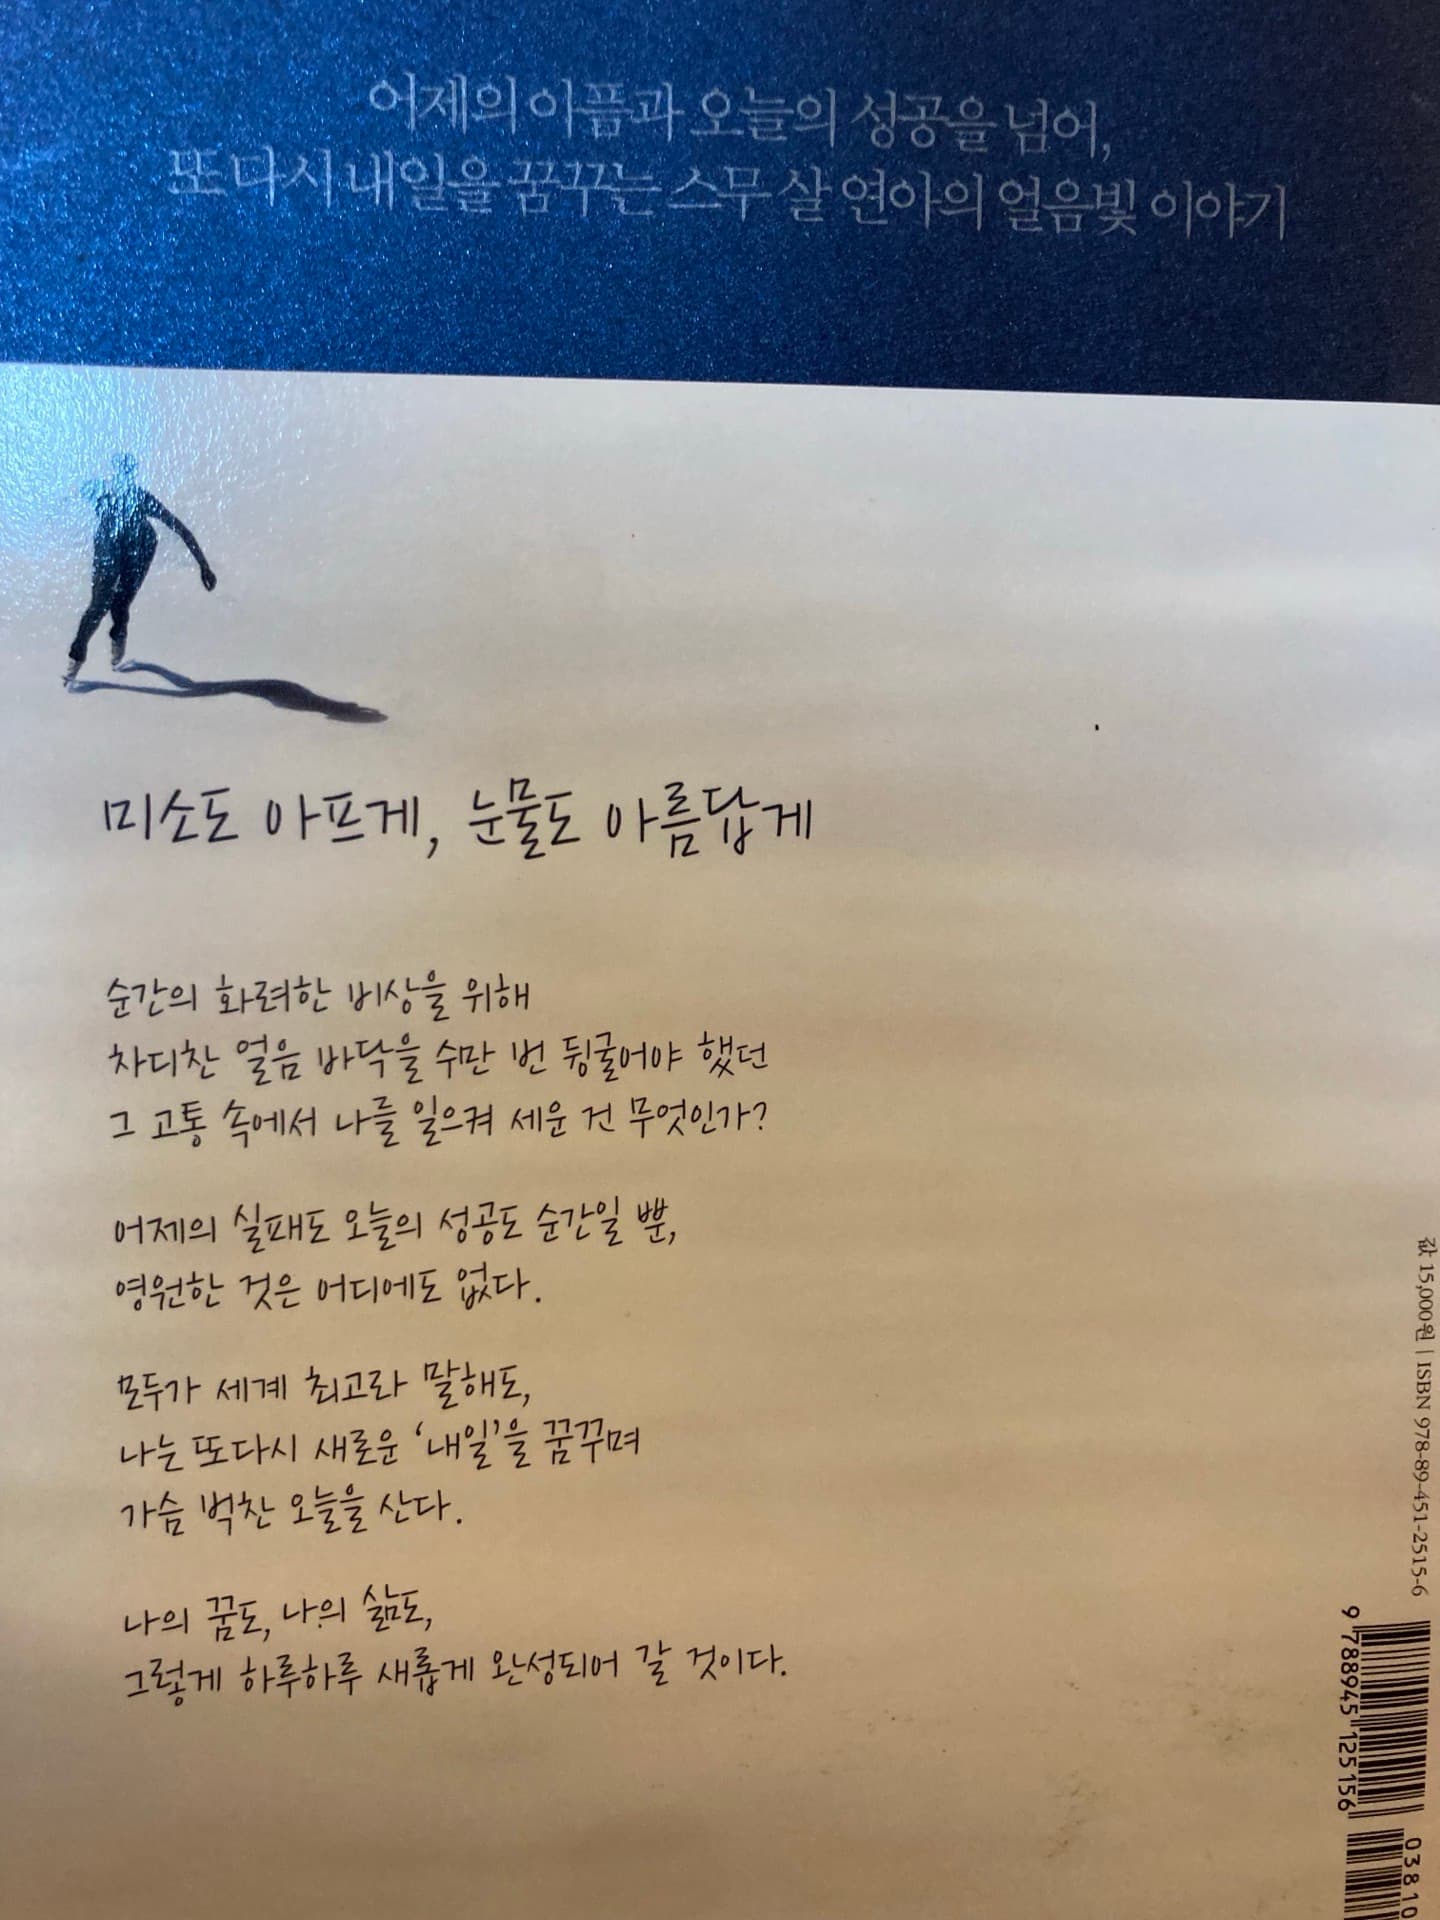 어제의 아픔과 오늘의 성공을 넘어,
또다시 내일을 꿈꾸는 스무 살 연아의 얼음빛 이야기
미소도 아프게, 눈물도 아름답게
순간의 화려한 비상을 위해
차디찬 얼음 바닥을 수만 번 뒹굴어야 했던
그 고통 속에서 나를 일으켜 세운 건 무엇인가?
어제의 실패도 오늘의 성공도 순간일 뿐,
영원한 것은 어디에도 없다.
모두가 세계 최고라 말해도,
나는 또다시 새로운 ‘내일’을 꿈꾸며
가슴 벅찬 오늘을 산다.
나의 꿈도, 나의 삶도,
그렇게 하루하루 새롭게 완성되어 갈 것이다.
값 15,000원 | ISBN 978-89-451-2515-6
9 788945 125156
03810